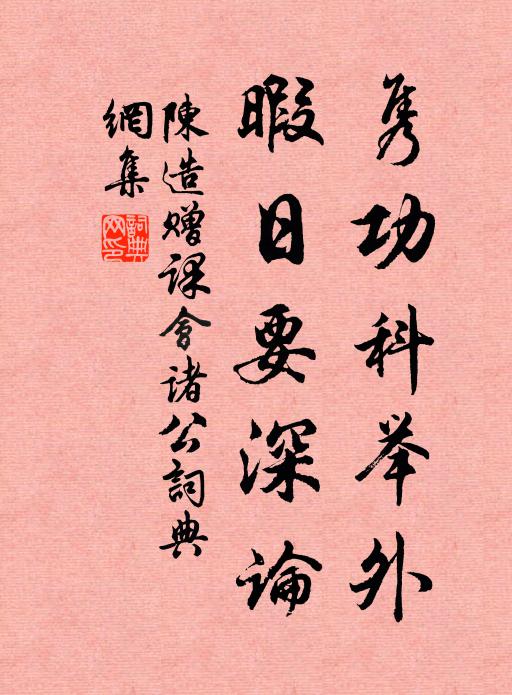 隽功科举外
暇日要深論
陳造赠課會諸公詞典
網集
詞典网印